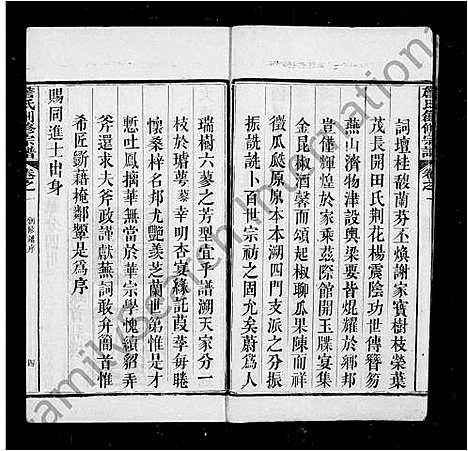 詹氏創修宗譜
卷之一
詞壇桂馥蘭芬丕煥謝家寶樹枝榮葉
茂長開田氏荆花楊震陰功世傳簪笏
燕山濟物津設輿梁要皆焜耀於鄉邦
豈僅輝煌於家乘茲際館開玉牒宴集
金昆椒酒馨而頌起椒聊瓜果陳而祥
徵瓜瓞原原本本溯四門支派之分振
振詵詵卜百世宗祊之固允矣蔚為人
瑞樹六蓼之芳型宜乎譜溯天家分一
枝於璿萼 幸明杏宴緣託葭莩每睠
懷桑梓名邦尤艷羡芝蘭世第惟是才
慙吐鳳摛華無當於華宗學愧續貂弄
斧還求夫斧政謹獻蕪詞敢弁簡首惟
希匠斵藉掩鄰顰是為序
賜同進士出身
詹氏創修宗譜
卷之一
創修譜序
四
FamilySearch International